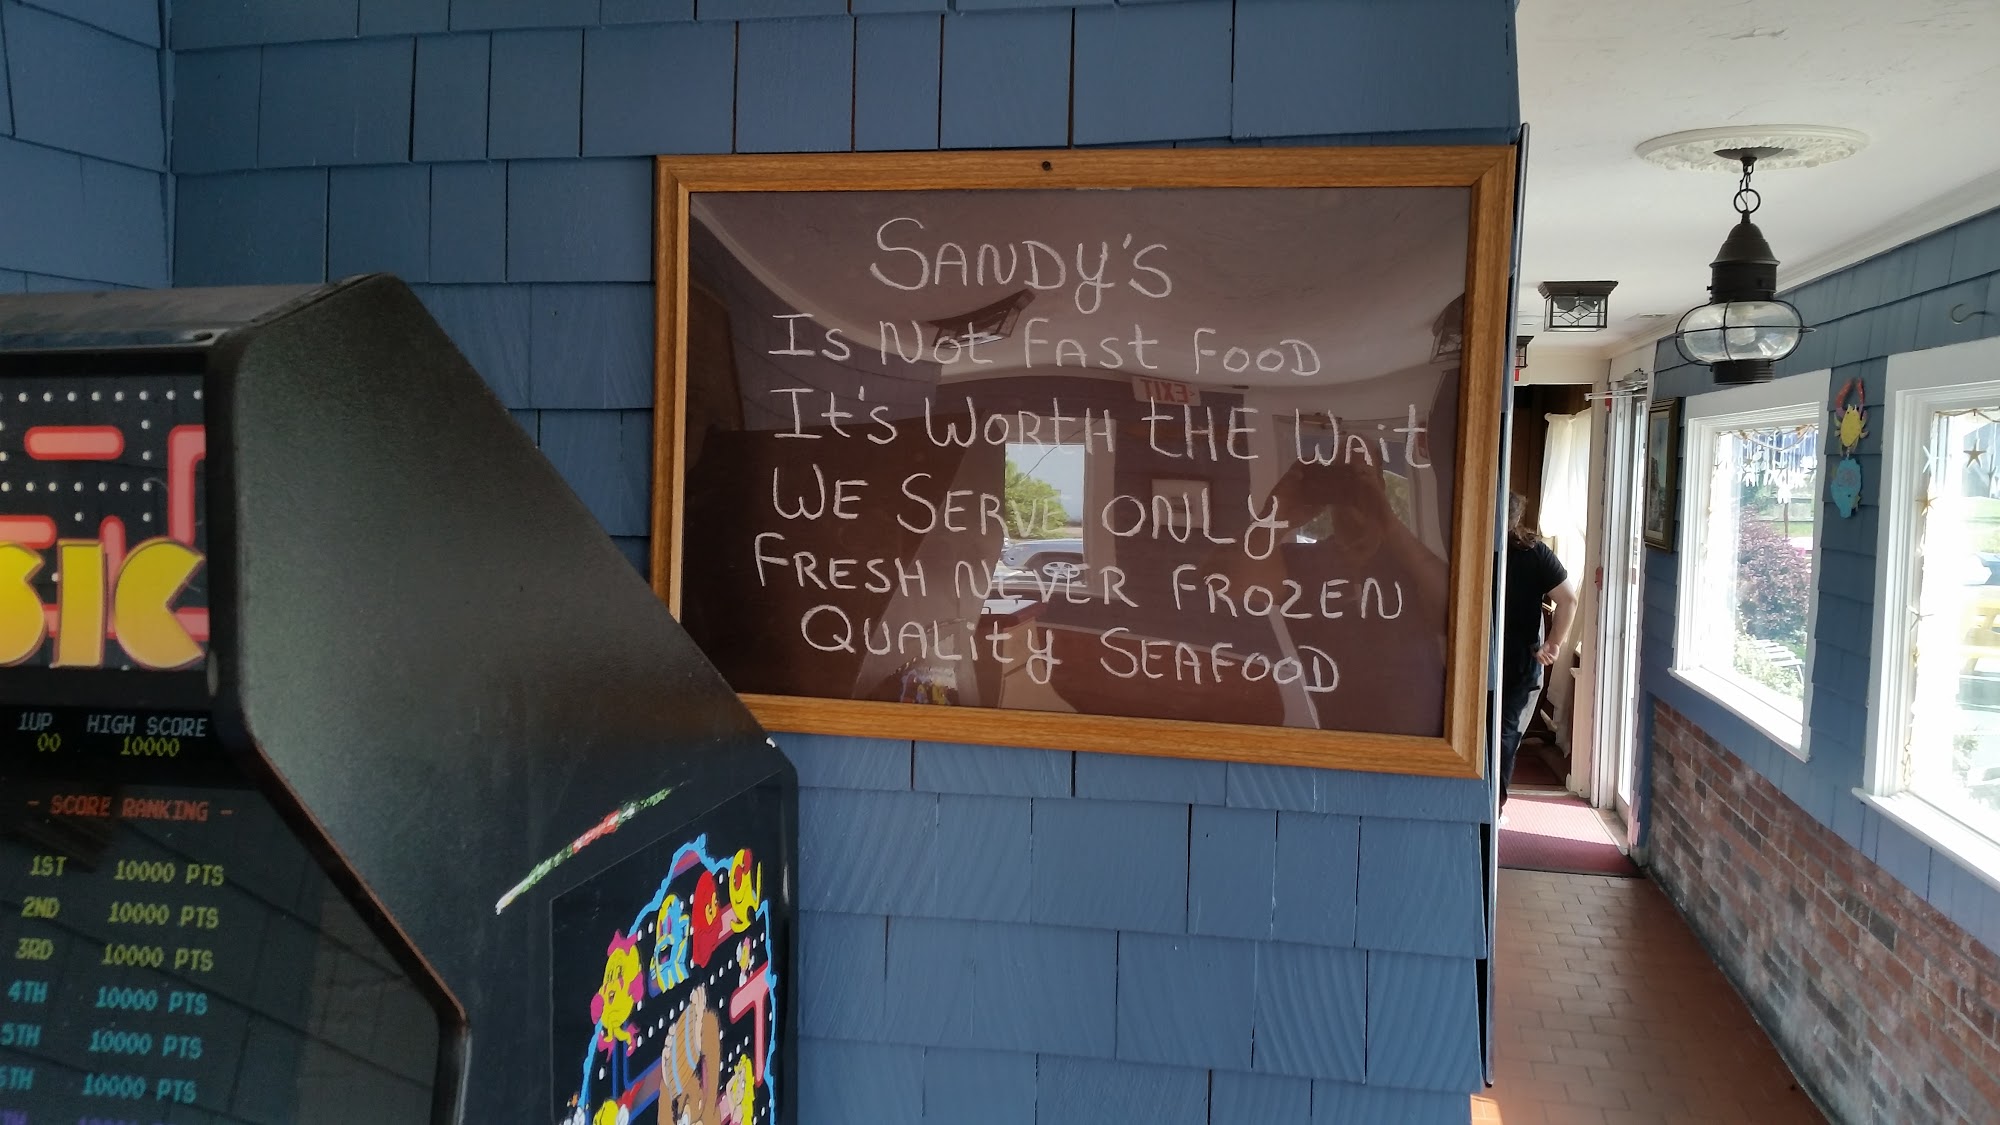 SANDY'S
Is Not FAst FOOD
It's WORTH tHE Wait
WE SERVE ONLY
FRESH NEVER FROZEN
QUALity SEAFOOD
EXIT
SIC
1UP HIGH SCORE
00 10000
- SCORE RANKING -
1ST 10000 PTS
2ND 10000 PTS
3RD 10000 PTS
4TH 10000 PTS
5TH 10000 PTS
6TH 10000 PTS